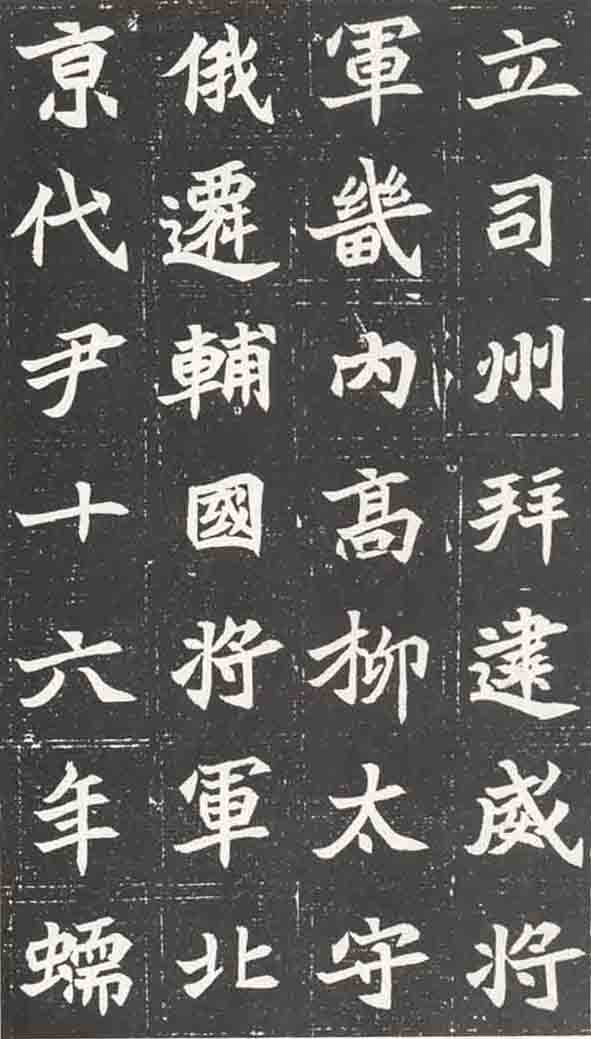 立司州拜建威將
軍畿內高柳太守
俄遷輔國將軍北
京代尹十六年蠕